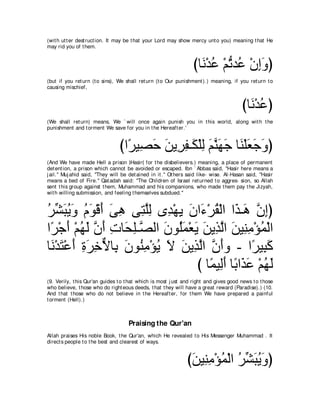 (with utter destruction. It may be that your Lord may show mercy unto you) meaning that He
may rid you of them.
(وَإِنْ عُدتُّمْ عُدْنَا)
(but if you return (to sins), We shall return (to Our punishment).) meaning, if you return to
causing mischief,
(عُدْنَا)
(We shall return) means, We ``will once again punish you in this world, along with the
punishment and torment We save for you in the Hereafter.'
(وَجَعَلْنَا جَهَنَّمَ لِلْكَـفِرِينَ حَصِيرًا)
(And We have made Hell a prison (Hasir) for the disbelievers.) meaning, a place of permanent
detention, a prison which cannot be avoided or escaped. Ibn `Abbas said, "Hasir here means a
jail." Mujahid said, "They will be detained in it." Others said like- wise. Al-Hasan said, "Hasir
means a bed of Fire." Qatadah said: "The Children of Israel returned to aggres- sion, so Allah
sent this group against them, Muhammad and his companions, who made them pay the Jizyah,
with willing submission, and feeling themselves subdued."
(إِنَّ هَـذَا الْقُرْءَانَ يَهْدِى لِلَّتِى هِىَ أَقْوَمُ وَيُبَشِّرُ
الْمُؤْمِنِينَ الَّذِينَ يَعْمَلُونَ الصَّـلِحَاتِ أَنَّ لَهُمْ أَجْرًا
كَبِيرًا - وأَنَّ الَّذِينَ لاَ يُؤْمِنُونَ بِالاٌّخِرَةِ أَعْتَدْنَا
لَهُمْ عَذَابًا أَلِيمًا)
(9. Verily, this Qur'an guides to that which is most just and right and gives good news to those
who believe, those who do righteous deeds, that they will have a great reward (Paradise).) (10.
And that those who do not believe in the Hereafter, for them We have prepared a painful
torment (Hell).)
Praising the Qur'an
Allah praises His noble Book, the Qur'an, which He revealed to His Messenger Muhammad . It
directs people to the best and clearest of ways.
(وَيُبَشِّرُ الْمُؤْمِنِينَ)